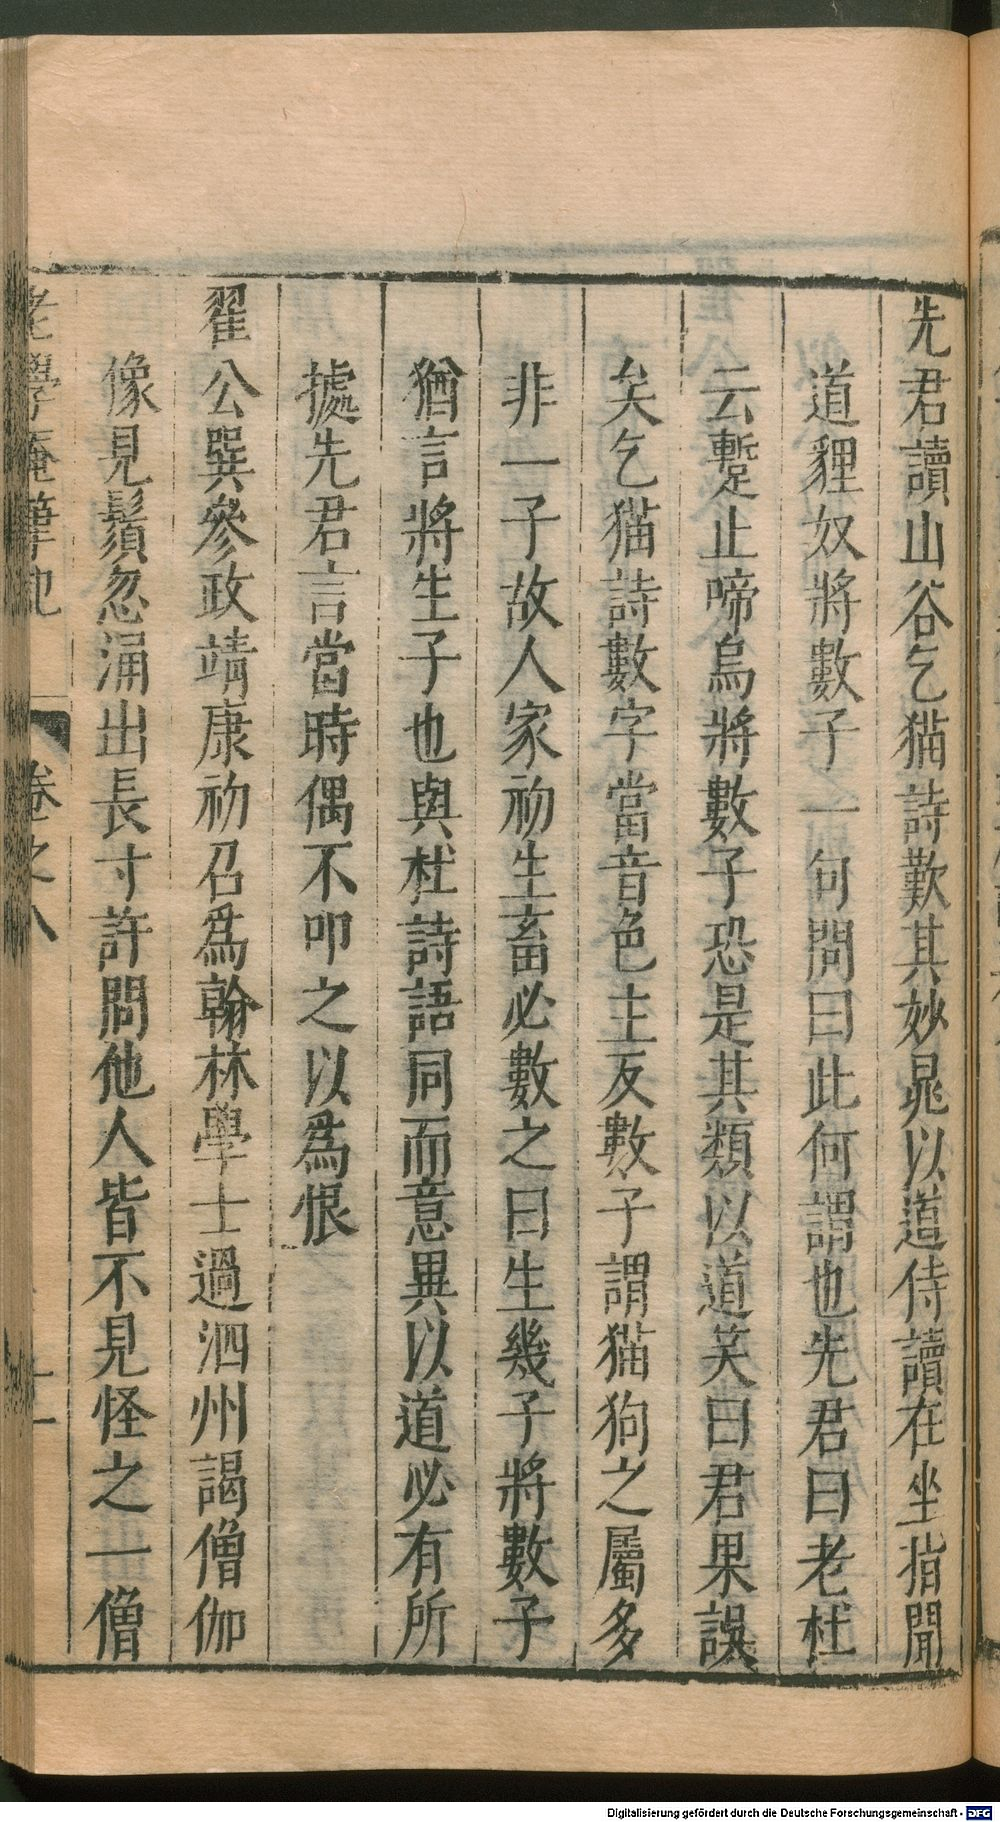 先君讀山谷乞猫詩歎其妙晁以道侍讀在坐指聞
道貍奴將數子一句問曰此何謂也先君曰老杜
云蹔止啼烏將數子恐是其類以道笑曰君果誤
矣乞猫詩數字當音色主反數子謂猫狗之屬多
非一子故人家初生畜必數之曰生幾子將數子
猶言將生子也與杜詩語同而意異以道必有所
據先君言當時偶不叩之以爲恨
翟公巽參政靖康初召爲翰林學士過泗州謁僧伽
像見鬚忽涌出長寸許問他人皆不見怪之一僧
老學庵筆記 卷之八 十一
Digitalisierung gefördert durch die Deutsche Forschungsgemeinschaft - DFG